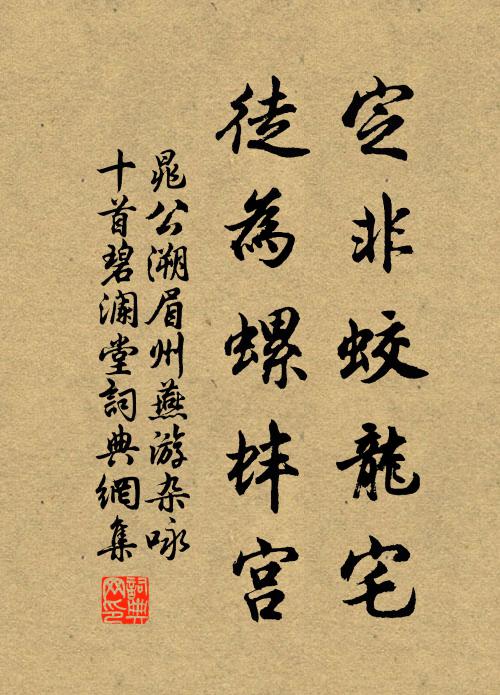 定非蛟龍宅
徒為螺蚌宮
晁公溯眉州燕游杂咏
十首碧澜堂詞典網集
詞典
网印